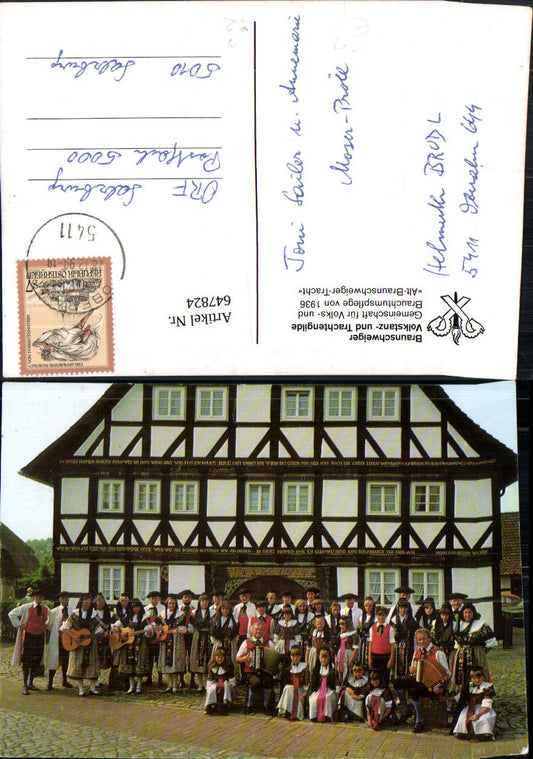 Braunschweiger
Volkstanz- und Trachtengilde
Gemeinschaft für Volks- und
Brauchtumspflege von 1936
»Alt-Braunschweiger-Tracht«
Artikel Nr.
647824
Toni Sailer u. Annemarie
Moser-Pröll
Helmuth BRUDL
5411
ORF
Postfach 5000
Salzburg
5010
Salzburg
5411
REPUBLIK ÖSTERREICH